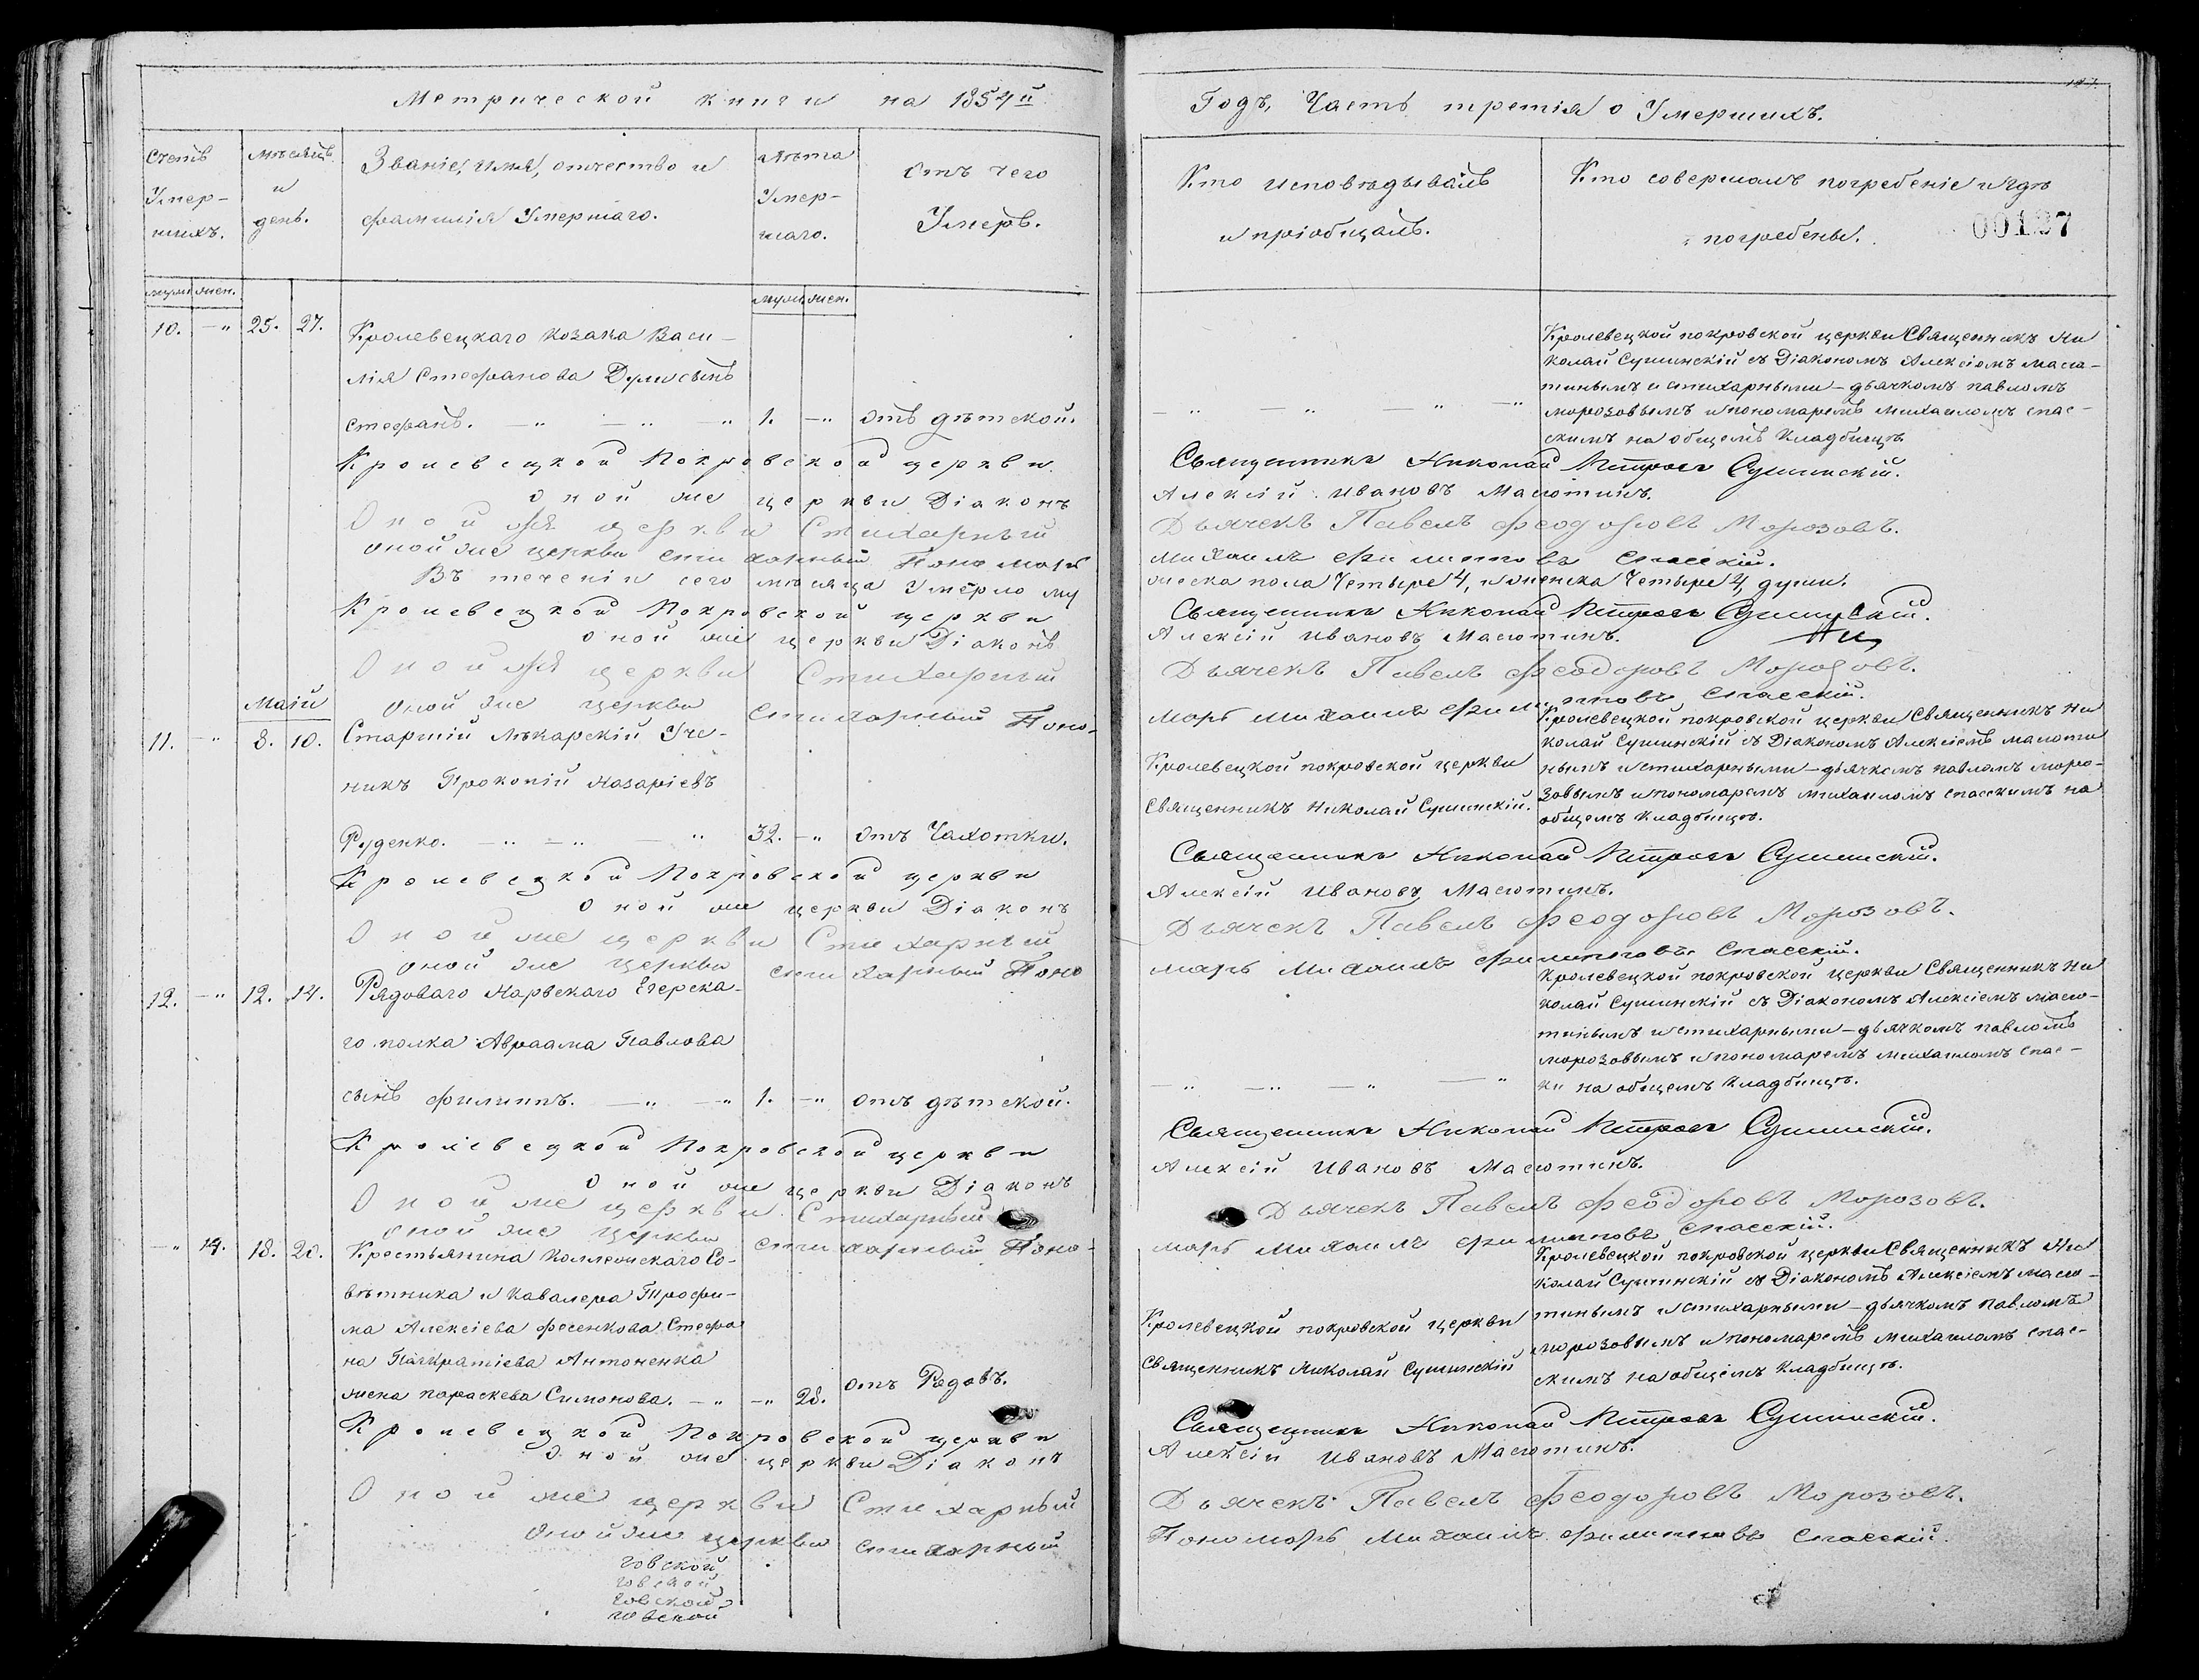 Метрической книги на 1854й
Счетъ
Умер-
шихъ.
Мѣсяцъ
и
день.
Званіе, имя, отчество и
фамилія Умершаго.
Лѣта
Умер-
шаго.
Отъ чего
Умеръ.
муж. жен.
муж. жен.
10. — „ 25. 27.
Кролевецкаго козака Васи-
лія Стефанова сынъ
Стефанъ. — „ — „ — „ 1. — „ отъ дѣтской.
Кролевецкой Покровской церкви
Оной же церкви Діаконъ
Оной же церкви Стихарный
Оной же церкви стихарный Пономарь
Въ теченіи сего мѣсяца Умерло му
Кролевецкой Покровской церкви
Оной же церкви Діаконъ
Оной же церкви Стихарный
Оной же церкви стихарный Поно-
Маій
11. — „ 8. 10.
Старшій Лѣкарскій Уче-
никъ Прокопій Назаріевъ
Руденко. — „ — „ — „ 32. — „ отъ Чахотки.
Кролевецкой Покровской церкви
Оной же церкви Діаконъ
Оной же церкви Стихарный
Оной же церкви стихарный Поно
12. — „ 12. 14.
Рядоваго Нарвскаго Егерска-
го полка Авраама Павлова
сынъ Филиппъ. — „ — „ 1. — „ отъ дѣтской.
Кролевецкой Покровской церкви
Оной же церкви Діаконъ
Оной же церкви Стихарный
Оной же церкви стихарный Поно-
— „ 14. 18. 20.
Крестьянина Коллежскаго Со-
вѣтника и Кавалера Трофи-
ма Алексіева Фесенкова Стефа
на Панкратіева Антоненка
жена Параскева Симонова. — „ — „ 28. отъ Родовъ.
Кролевецкой Покровской церкви
Оной же церкви Діаконъ
Оной же церкви Стихарный
Оной же церкви стихарный
говской
говской
говской
говской
Годъ, Часть третія о Умершихъ.
Кто исповѣдывалъ
и пріобщалъ.
Кто совершалъ погребеніе и гдѣ
погребены.
00127
Кролевецкой покровской церкви Священникъ Ни
колай Сушинскій съ Діакономъ Алексіемъ Масю-
тинымъ и стихарными — дьячкомъ павломъ
морозовымъ и пономаремъ михаиломъ спас-
скимъ на общемъ кладбищѣ.
— „ — „ — „ — „
Священникъ Николай Петровъ Сушинскій.
Алексій Ивановъ Масютинъ.
Дьячекъ Павелъ Феодоровъ Морозовъ.
Михаилъ Филипповъ Спасскій.
жеска пола Четыре 4, и женска Четыре 4, души.
Священникъ Николай Петровъ Сушинскій.
Алексій Ивановъ Масютинъ.
Дьячекъ Павелъ Феодоровъ Морозовъ.
марь Михаилъ Филипповъ Спасскій.
Кролевецкой покровской церкви
Священникъ Николай Сушинскій.
Кролевецкой покровской церкви Священникъ Ни
колай Сушинскій съ Діакономъ Алексіемъ масюти
нымъ и стихарными — дьячкомъ павломъ моро-
зовымъ и пономаремъ михаиломъ спасскимъ на
общемъ кладбищѣ.
Священникъ Николай Петровъ Сушинскій.
Алексій Ивановъ Масютинъ.
Дьячекъ Павелъ Феодоровъ Морозовъ.
марь Михаилъ Филипповъ Спасскій.
Кролевецкой покровской церкви Священникъ Ни
колай Сушинскій съ Діакономъ Алексіемъ масю-
тинымъ и стихарными — дьячкомъ павломъ
морозовымъ и пономаремъ михаиломъ спас-
ки на общемъ кладбищѣ.
— „ — „ — „ — „
Священникъ Николай Петровъ Сушинскій.
Алексій Ивановъ Масютинъ.
Дьячекъ Павелъ Феодоровъ Морозовъ.
марь Михаилъ Филипповъ Спасскій.
Кролевецкой покровской церкви
Священникъ Николай Сушинскій
Кролевецкой покровской церкви Священникъ Ни
колай Сушинскій съ Діакономъ Алексіемъ масю-
тинымъ и стихарными — дьячкомъ павломъ
морозовымъ и пономаремъ михаиломъ спас-
скимъ на общемъ кладбищѣ.
Священникъ Николай Петровъ Сушинскій.
Алексій Ивановъ Масютинъ.
Дьячекъ Павелъ Феодоровъ Морозовъ.
Пономарь Михаилъ Филипповъ Спасскій.